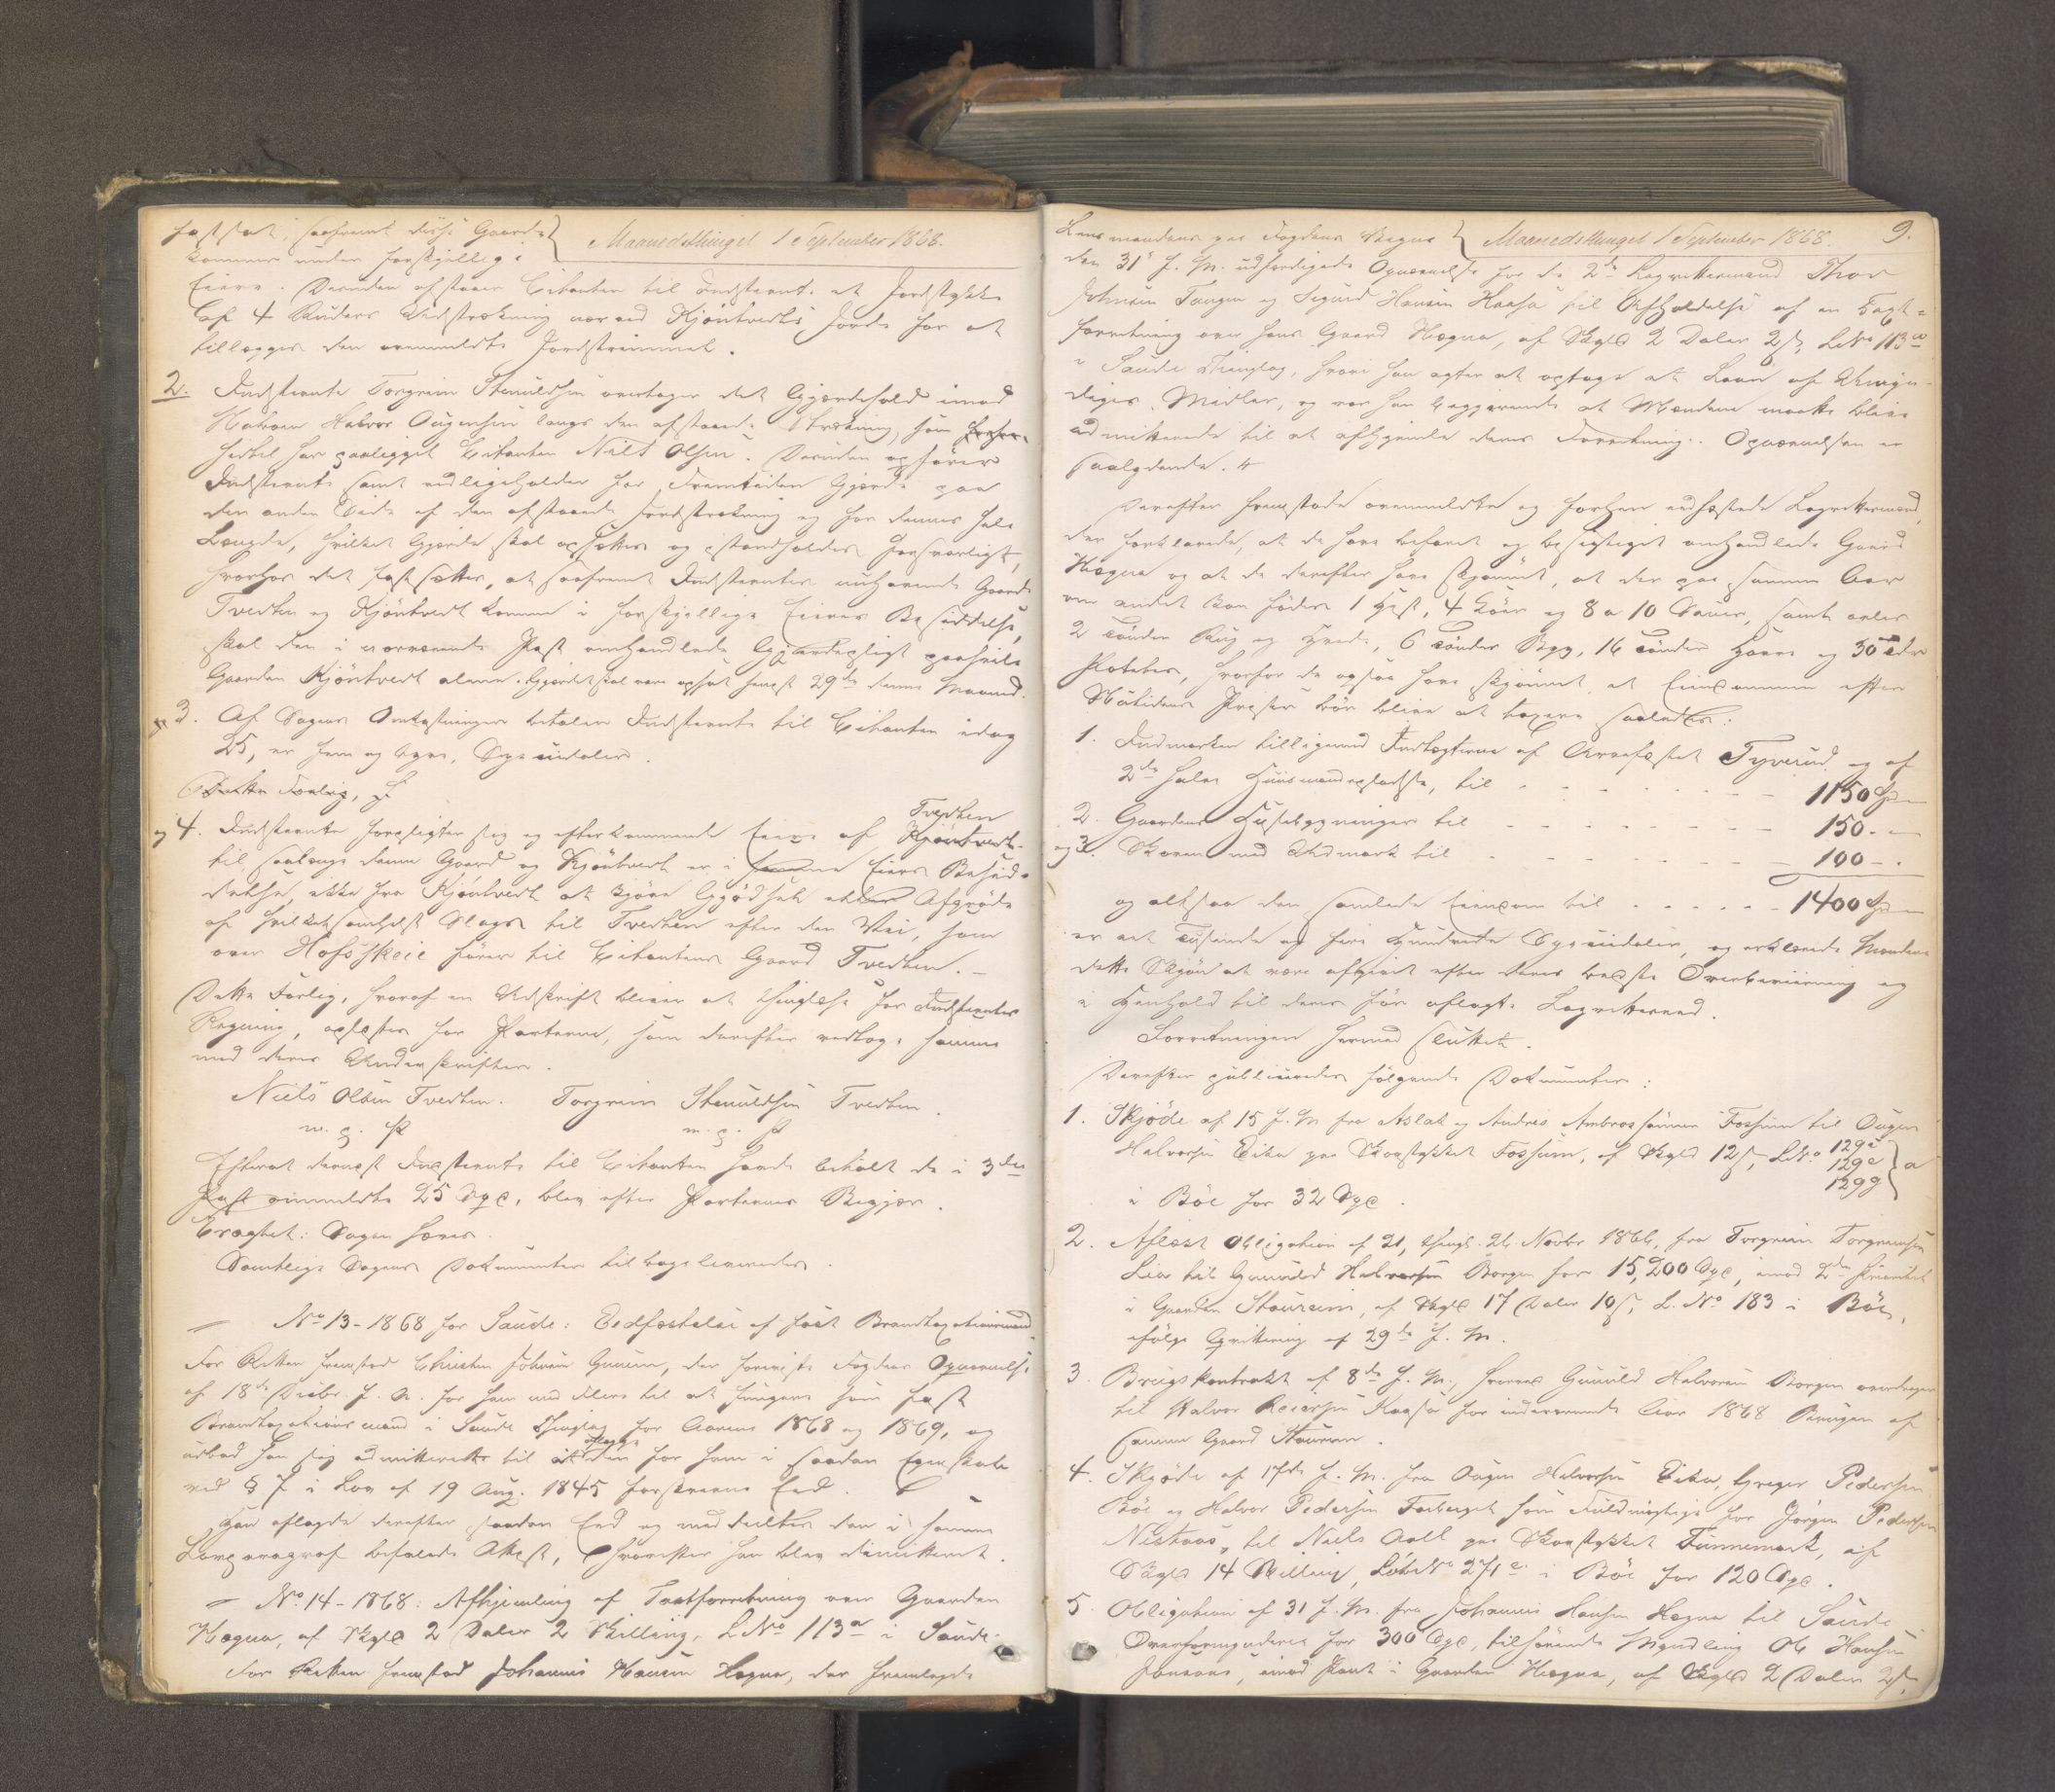 fastsat, saafremt disse Gaarde
Maanedsthinget 1 September 1868.
kommer under forskjellige
Eiere. Desuden afstaaer Citanten til Indstevnte et Jordstykke
af 4 Ruders Udstrækning ved Kjöntvedts Jorde for at
tillægges den ommeldte Jordstrimmel.
2. Indstevnte Torgrim Stenuldsen overtager det Gjærdehold imod
Halvor Ougensen langs den afstaaede Strækning, som
hidtil har paaligget Citanten Niels Olsen. Desuden opförer
Indstevnte samt vedligeholder for Fremtiden Gjærde paa
den anden Side af den afstaaede Jordstrækning og for dennes hele
Længde, hvilket Gjærde skal opsættes og istandholdes forsvarligt,
hvorhos det fastsættes, at saafremt Indstevntes nuhavende Gaarde
Tvedten og Kjöntvedt komme i forskjellige Eieres Besiddelse,
skal den i nærværende Post omhandlede Gjærdepligt paahvile
Gaarden Kjöntvedt alene. Gjærdet skal være opsat senest 29de denne Maaned.
3. Af Sagens Omkostninger betaler Indstevnte til Citanten idag
25, er fem og tyve, Speciedaler.
Dette Forlig,
og 4. Indstevnte forpligter sig og efterkommende Eiere af Tvedten Kjöntvedt
til saalænge denne Gaard og Kjöntvedt er i samme Eiers Besid-
delse, ikke fra Kjöntvedt at kjöre Gjödsel eller Afgröde
af hvilketsomhelst Slags til Tvedten efter den Vei, som
over Hofsskeie förer til Citantens Gaard Tvedten. –
Dette Forlig, hvoraf en Udskrift bliver at thinglæse for Indstevntes
Regning, oplæstes for Parterne, som derefter vedtog samme
med deres Underskrifter.
Niels Olsen Tvedten. Torgrim Stenuldsen Tvedten.
m. p. P m. p. P
Efterat dernæst Indstevnte til Citanten havde betalt de i 3die
Post ommeldte 25 Spd, blev efter Parternes Begjær
Eragtet: Sagen hæves.
Samtlige Sagens Dokumenter tilbageleveredes.
No 13 - 1868 for Saude: Eedfæstelse af fast Brandtaxationsmand.
For Retten fremstod Christen Johnsen Gunnen, der foreviste Fogdens Opnævnelse
af 18de Decbr. f. A. for ham med flere til at fungere som fast
Brandtaxationsmand i Saude Thinglag for Aarene 1868 og 1869, og
udbad han sig admitteret til at aflægge den for ham i saadan Egenskab
ved § 7 i Lov af 19 Aug. 1845 foreskrevne Eed.
Han aflagde derefter saadan Eed og meddeltes den i samme
Lovparagraf befalede Attest, hvorefter han blev dimitteret.
No 14 - 1868: Afhjemling af Taxtforretning over Gaarden
Hægna, af Skyld 2 Daler 2 Skilling, L No 113a i Saude.
For Retten fremstod Johannes Hansen Hægna, der fremlagde
Lensmandens paa Fogdens Vegne
Maanedsthinget 1 September 1868.
9.
den 31te f. M. udfærdigede Opnævnelse for de 2de Lagrettesmænd Thor
Johnsen Tangen og Sigurd Hansen Haasa til Afholdelse af en Taxt-
forretning over hans Gaard Hægna, af Skyld 2 Daler 2 ß, LNo 113a
i Saude Thinglag, hvori han agter at optage et Laan af Umyn-
diges Midler, og var han begjærende at Mændene maatte blive
admitterede til at afhjemle deres Forretning. Opnævnelsen er
saalydende. 4
Derefter fremstode ommeldte og forhen eedfæstede Lagrettesmænd,
der forklarede, at de have befaret og besigtiget omhandlede Gaard
Hægna og at de derefter have skjönnet, at der paa samme Aar
om andet kan födes 1 Hest, 4 Köer og 8 a 10 Sauer, samt avles
2 Tönder Rug og Hvede, 6 Tönder Byg, 16 Tönder Havre og 30 Tdr
Poteter, hvorfor de ogsaa have skjönnet, at Eiendommen efter
Nutidens Priser bör blive at taxere saaledes:
1. Indmarken tilligemed Indtægterne af Arvefæstet Tyverud og af
2de halve Huusmandspladse, til 1150 Spd
2. Gaardens Husebygninger til 150. –
og 3. Skoven med Udmark til 100 –.
og altsaa den samlede Eiendom til 1400 Spd
er eet Tusinde og fire Hundrede Speciedaler, og erklærede Mændene
dette Skjön at være afgivet efter deres bedste Overbeviisning og
i Henhold til deres för aflagte Lagrettesed.
Forretningen hermed sluttet.
Derefter publiceredes fölgende Dokumenter:
1. Skjöde af 15 f. M fra Aslak og Andres Ambrossönner Fossum til Ougen
Halvorsen Eika paa Skovstykket Fossum, af Skyld 12 ß, LNo 129c
129e a
129g
i Böe for 32 Spd.
2. Aflæst Obligation af 21, thingl. 26 Novbr 1866, fra Torgrim Torgrimsen
Lia til Gunuld Halvorsen Borgen for 15,200 Spd, imod 2den Prioritet
i Gaarden Steurein, af Skyld 17 Daler 10 ß, L. No 183 i Böe,
ifölge Qvittering af 29de f. M.
3. Brugskontrakt af 8de f. M., hvorved Gunuld Halvorsen Borgen overdrager
til Halvor Reiersen Haasa for indeværende Aar 1868 Brugen af
samme Gaard Steurein.
4. Skjöde af 17de f. M. fra Ougen Halvorsen Eika, Greger Pedersen
Böe og Halvor Pedersen Forberget som Fuldmægtige for Jörgen Pedersen
Nistaas, til Niels Aall paa Skovstykket Finnemark, af
Skyld 14 Skilling, LöbeNo 271c i Böe for 120 Spd.
5. Obligation af 31 f. M. fra Johannes Hansen Hægna til Saude
Overformynderie for 300 Spd, tilhörende Myndling Ole Hansen
imod Pant i Gaarden Hægna, af Skyld 2 Daler 2 ß,